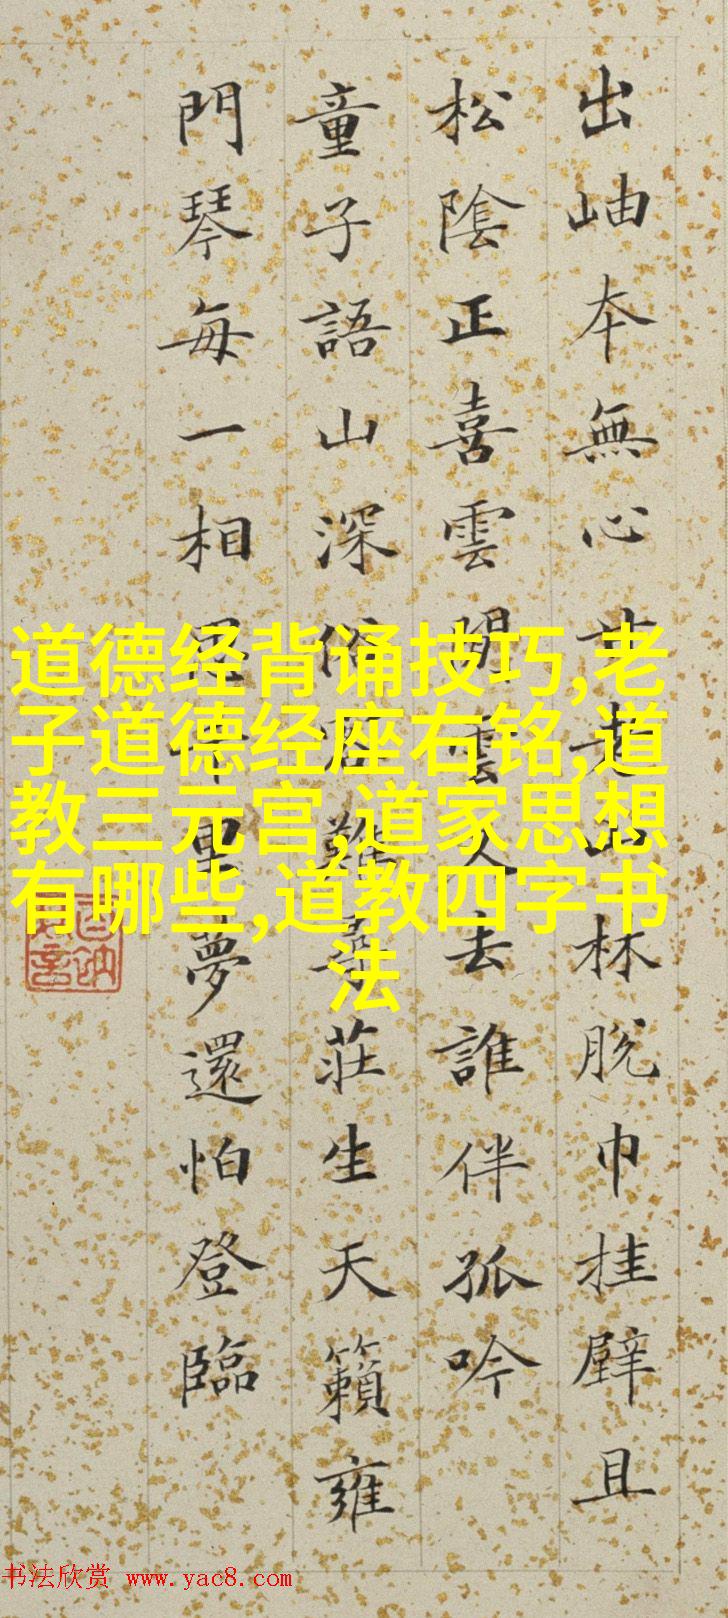 出岫本無心起林脫巾挂壁且
松陰正喜雲閒雲去誰伴孤吟
童子語山深俗客難尋莊生天籟雍
門琴每一相千里夢還怕登臨
道德经背诵技巧,老
子道德经座右铭,道
教三元宫,道家思想
有哪些,道教四字书
法
书法欣赏 www.yac8.com